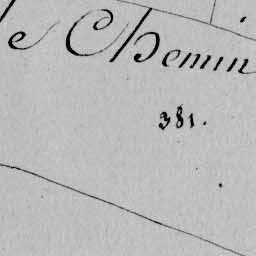 le Chemin
381.